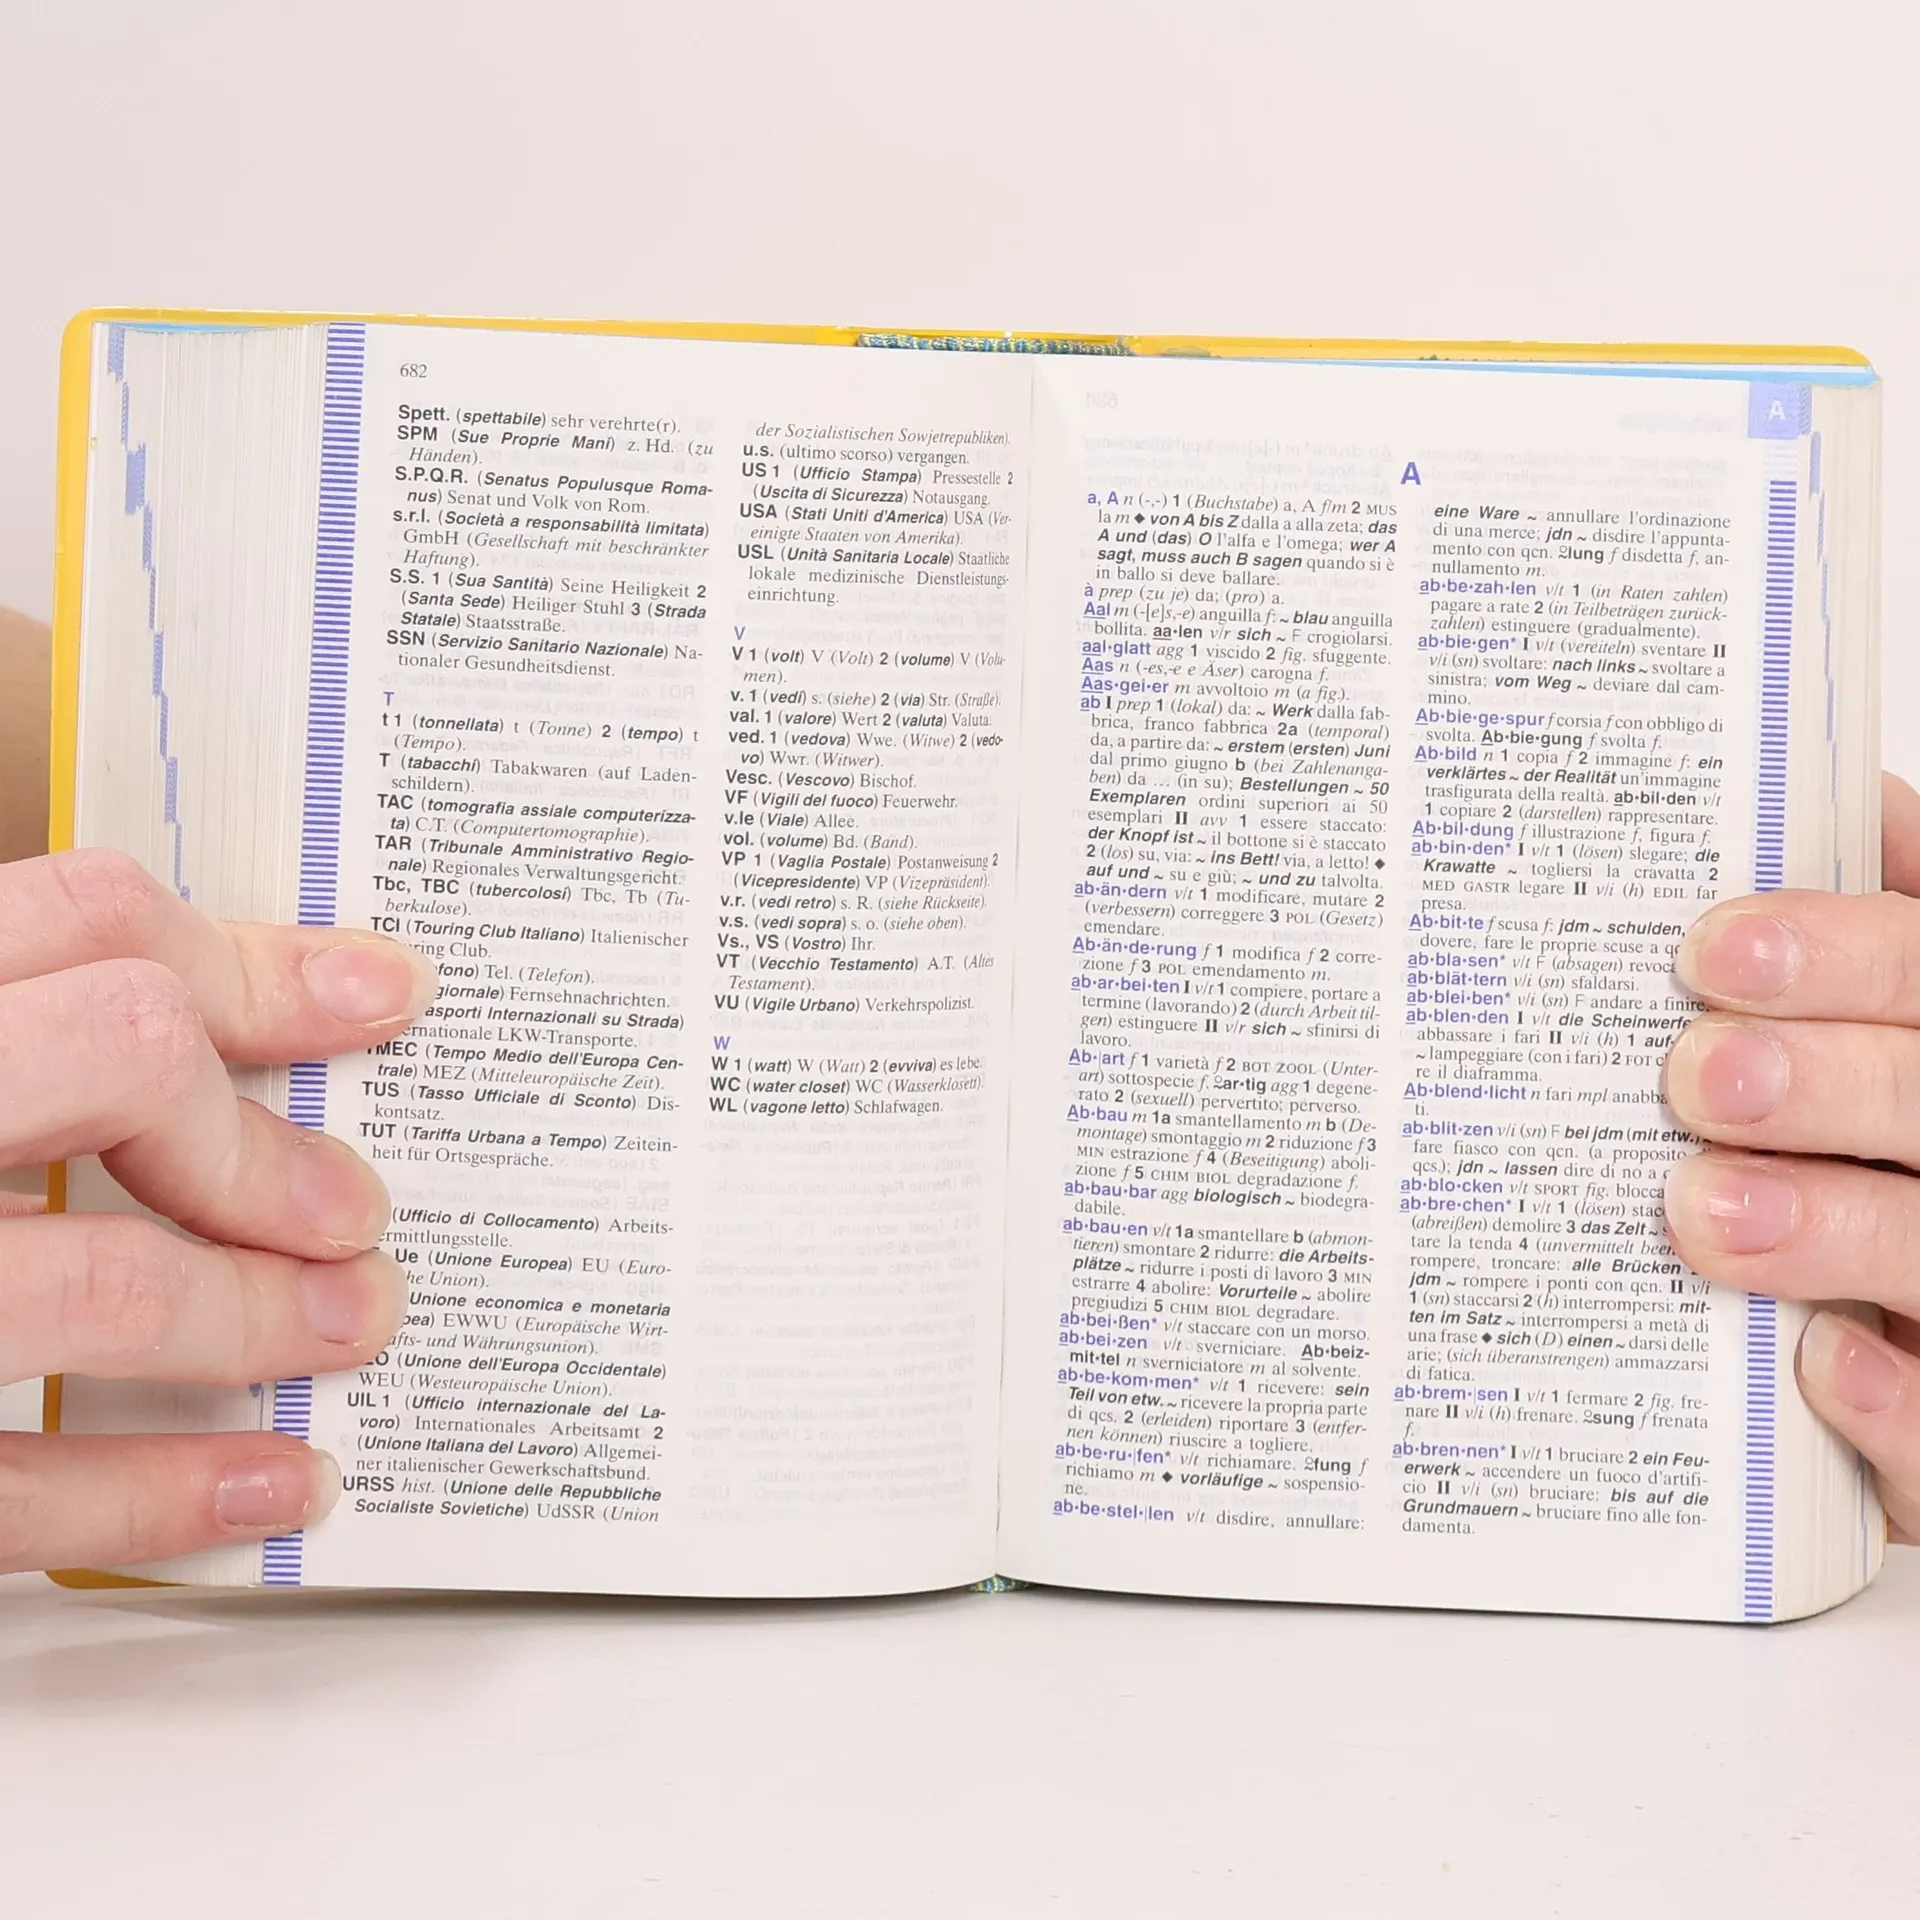 682
Spett. (spettabile) sehr verehrte(r).
SPM (Sue Proprie Mani) z. Hd. (zu
Händen).
S.P.Q.R. (Senatus Populusque Roma-
nus) Senat und Volk von Rom.
s.r.l. (Società a responsabilità limitata)
GmbH (Gesellschaft mit beschränkter
Haftung).
S.S. 1 (Sua Santità) Seine Heiligkeit 2
(Santa Sede) Heiliger Stuhl 3 (Strada
Statale) Staatsstraße.
SSN (Servizio Sanitario Nazionale) Na-
tionaler Gesundheitsdienst.
T
t 1 (tonnellata) t (Tonne) 2 (tempo) t
(Tempo).
T (tabacchi) Tabakwaren (auf Laden-
schildern).
TAC (tomografia assiale computerizza-
ta) C.T. (Computertomographie).
TAR (Tribunale Amministrativo Regio-
nale) Regionales Verwaltungsgericht.
Tbc, TBC (tubercolosi) Tbc, Tb (Tu-
berkulose).
TCI (Touring Club Italiano) Italienischer
ring Club.
fono) Tel. (Telefon).
giornale) Fernsehnachrichten.
asporti Internazionali su Strada)
ernationale LKW-Transporte.
TMEC (Tempo Medio dell'Europa Cen-
trale) MEZ (Mitteleuropäische Zeit).
TUS (Tasso Ufficiale di Sconto) Dis-
kontsatz.
TUT (Tariffa Urbana a Tempo) Zeitein-
heit für Ortsgespräche.
(Ufficio di Collocamento) Arbeits-
ermittlungsstelle.
Ue (Unione Europea) EU (Euro-
he Union).
Unione economica e monetaria
pea) EWWU (Europäische Wirt-
afts- und Währungsunion).
EO (Unione dell'Europa Occidentale)
WEU (Westeuropäische Union).
UIL 1 (Ufficio internazionale del La-
voro) Internationales Arbeitsamt 2
(Unione Italiana del Lavoro) Allgemei-
ner italienischer Gewerkschaftsbund.
URSS hist. (Unione delle Repubbliche
Socialiste Sovietiche) UdSSR (Union
der Sozialistischen Sowjetrepubliken).
u.s. (ultimo scorso) vergangen.
US 1 (Ufficio Stampa) Pressestelle 2
(Uscita di Sicurezza) Notausgang.
USA (Stati Uniti d'America) USA (Ver-
einigte Staaten von Amerika).
USL (Unità Sanitaria Locale) Staatliche
lokale medizinische Dienstleistungs-
einrichtung.
V
V 1 (volt) V (Volt) 2 (volume) V (Volu-
men).
v. 1 (vedi) s. (siehe) 2 (via) Str. (Straße).
val. 1 (valore) Wert 2 (valuta) Valuta.
ved. 1 (vedova) Wwe. (Witwe) 2 (vedo-
vo) Wwr. (Witwer).
Vesc. (Vescovo) Bischof.
VF (Vigili del fuoco) Feuerwehr.
v.le (Viale) Allee.
vol. (volume) Bd. (Band).
VP 1 (Vaglia Postale) Postanweisung 2
(Vicepresidente) VP (Vizepräsident).
v.r. (vedi retro) s. R. (siehe Rückseite).
v.s. (vedi sopra) s. o. (siehe oben).
Vs., VS (Vostro) Ihr.
VT (Vecchio Testamento) A.T. (Altes
Testament).
VU (Vigile Urbano) Verkehrspolizist.
W
W 1 (watt) W (Watt) 2 (evviva) es lebe.
WC (water closet) WC (Wasserklosett).
WL (vagone letto) Schlafwagen.
A
A
a, A n (-,-) 1 (Buchstabe) a, A f/m 2 MUS
la m ◆ von A bis Z dalla a alla zeta; das
A und (das) O l'alfa e l'omega; wer A
sagt, muss auch B sagen quando si è
in ballo si deve ballare.
à prep (zu je) da; (pro) a.
Aal m (-[e]s,-e) anguilla f: ~ blau anguilla
bollita. aa·len v/r sich ~ F crogiolarsi.
aal·glatt agg 1 viscido 2 fig. sfuggente.
Aas n (-es,-e e Äser) carogna f.
Aas·gei·er m avvoltoio m (a fig.).
ab I prep 1 (lokal) da: ~ Werk dalla fab-
brica, franco fabbrica 2a (temporal)
da, a partire da: ~ erstem (ersten) Juni
dal primo giugno b (bei Zahlenanga-
ben) da … (in su); Bestellungen ~ 50
Exemplaren ordini superiori ai 50
esemplari II avv 1 essere staccato:
der Knopf ist ~ il bottone si è staccato
2 (los) su, via: ~ ins Bett! via, a letto! ◆
auf und ~ su e giù; ~ und zu talvolta.
ab·än·dern v/t 1 modificare, mutare 2
(verbessern) correggere 3 POL (Gesetz)
emendare.
Ab·än·de·rung f 1 modifica f 2 corre-
zione f 3 POL emendamento m.
ab·ar·bei·ten I v/t 1 compiere, portare a
termine (lavorando) 2 (durch Arbeit til-
gen) estinguere II v/r sich ~ sfinirsi di
lavoro.
Ab·|art f 1 varietà f 2 BOT ZOOL (Unter-
art) sottospecie f. 2ar·tig agg 1 degene-
rato 2 (sexuell) pervertito; perverso.
Ab·bau m 1a smantellamento m b (De-
montage) smontaggio m 2 riduzione f 3
MIN estrazione f 4 (Beseitigung) aboli-
zione f 5 CHIM BIOL degradazione f.
ab·bau·bar agg biologisch ~ biodegra-
dabile.
ab·bau·en v/t 1a smantellare b (abmon-
tieren) smontare 2 ridurre: die Arbeits-
plätze ~ ridurre i posti di lavoro 3 MIN
estrarre 4 abolire: Vorurteile ~ abolire
pregiudizi 5 CHIM BIOL degradare.
ab·bei·ßen* v/t staccare con un morso.
ab·bei·zen v/t sverniciare. Ab·beiz-
mit·tel n sverniciatore m al solvente.
ab·be·kom·men* v/t 1 ricevere: sein
Teil von etw. ~ ricevere la propria parte
di qcs. 2 (erleiden) riportare 3 (entfer-
nen können) riuscire a togliere.
ab·be·ru·|fen* v/t richiamare. 2fung f
richiamo m ◆ vorläufige ~ sospensio-
ne.
ab·be·stel·|len v/t disdire, annullare:
eine Ware ~ annullare l'ordinazione
di una merce; jdn ~ disdire l'appunta-
mento con qcn. 2lung f disdetta f, an-
nullamento m.
ab·be·zah·len v/t 1 (in Raten zahlen)
pagare a rate 2 (in Teilbeträgen zurück-
zahlen) estinguere (gradualmente).
ab·bie·gen* I v/t (vereiteln) sventare II
v/i (sn) svoltare: nach links ~ svoltare a
sinistra; vom Weg ~ deviare dal cam-
mino.
Ab·bie·ge·spur f corsia f con obbligo di
svolta. Ab·bie·gung f svolta f.
Ab·bild n 1 copia f 2 immagine f: ein
verklärtes ~ der Realität un'immagine
trasfigurata della realtà. ab·bil·den v/t
1 copiare 2 (darstellen) rappresentare.
Ab·bil·dung f illustrazione f, figura f.
ab·bin·den* I v/t 1 (lösen) slegare; die
Krawatte ~ togliersi la cravatta 2
MED GASTR legare II v/i (h) EDIL far
presa.
Ab·bit·te f scusa f: jdm ~ schulden,
dovere, fare le proprie scuse a qc
ab·bla·sen* v/t F (absagen) revoca
ab·blät·tern v/i (sn) sfaldarsi.
ab·blei·ben* v/i (sn) F andare a finire.
ab·blen·den I v/t die Scheinwerfe
abbassare i fari II v/i (h) 1 auf-
~ lampeggiare (con i fari) 2 FOT c
re il diaframma.
Ab·blend·licht n fari mpl anabba
ti.
ab·blit·zen v/i (sn) F bei jdm (mit etw.) ~
fare fiasco con qcn. (a proposito
qcs.); jdn ~ lassen dire di no a
ab·blo·cken v/t SPORT fig. blocca
ab·bre·chen* I v/t 1 (lösen) stac
(abreißen) demolire 3 das Zelt ~ s
tare la tenda 4 (unvermittelt been
rompere, troncare: alle Brücken
jdm ~ rompere i ponti con qcn. II v/i
1 (sn) staccarsi 2 (h) interrompersi: mit-
ten im Satz ~ interrompersi a metà di
una frase ◆ sich (D) einen ~ darsi delle
arie; (sich überanstrengen) ammazzarsi
di fatica.
ab·brem·|sen I v/t 1 fermare 2 fig. fre-
nare II v/i (h) frenare. 2sung f frenata
f.
ab·bren·nen* I v/t 1 bruciare 2 ein Feu-
erwerk ~ accendere un fuoco d'artifi-
cio II v/i (sn) bruciare: bis auf die
Grundmauern ~ bruciare fino alle fon-
damenta.